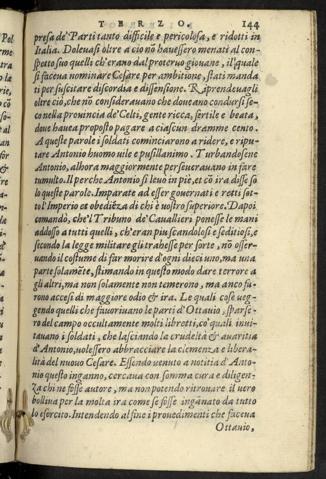 TERZO. 144
presa de' Parti tanto difficile e pericolosa, e ridotti in
Italia. Doleuasi oltre a ciò nō hauessero menati al con-
spetto suo quelli ch'erano dal proteruo giouane, il quale
si faceua nominare Cesare per ambitione, stati manda
ti per suscitare discordia e dissensione. Riprendeuagli
oltre ciò, che nō considerauano che doueano condursi se-
co nella prouincia de' Celti, gente ricca, fertile e beata,
doue haueua proposto pagare a ciascun dramme cento.
A queste parole i soldati cominciarono a ridere, e ripu-
tare Antonio huomo uile e pusillanimo. Turbandosene
Antonio, alhora maggiormente perseuerauano in fare
tumulto. Il perche Antonio si leuò in piè, at cō ira disse so
lo queste parole. Imparate ad esser gouernati e retti sot-
to l'Imperio et obediēza di chi è uostro superiore. Dapoi
comandò, che'l Tribuno de' Cauallieri ponesse le mani
addosso a tutti quelli, ch'eran piu scandolosi e seditiosi, e
secondo la legge militare gli trahesse per sorte, nō osser-
uando il costume di far morire d'ogni dieci uno, ma una
parte solamēte, stimando in questo modo dare terrore a
gli altri, ma non solamente non temerono, ma anco fu-
rono accesi di maggiore odio & ira. Le quali cose ueg-
gendo quelli che fauoriuano le parti d'Ottauio, sparse-
ro del campo occultamente molti libretti, co' quali inui-
tauano i soldati, che lasciando la crudeltà & auaritia
d'Antonio, uolessero abbracciare la clemenza e libera-
lità del nuouo Cesare. Essendo uenuto a notitia d'Anto-
nio questo inganno, cercaua con somma cura e diligen-
za chi ne fosse autore, ma non potendo ritrouare il uero
bolliua per la molta ira come se fosse ingānato da tutto
lo esercito. Intendendo al fine i prouedimenti che faceua
Ottauio,